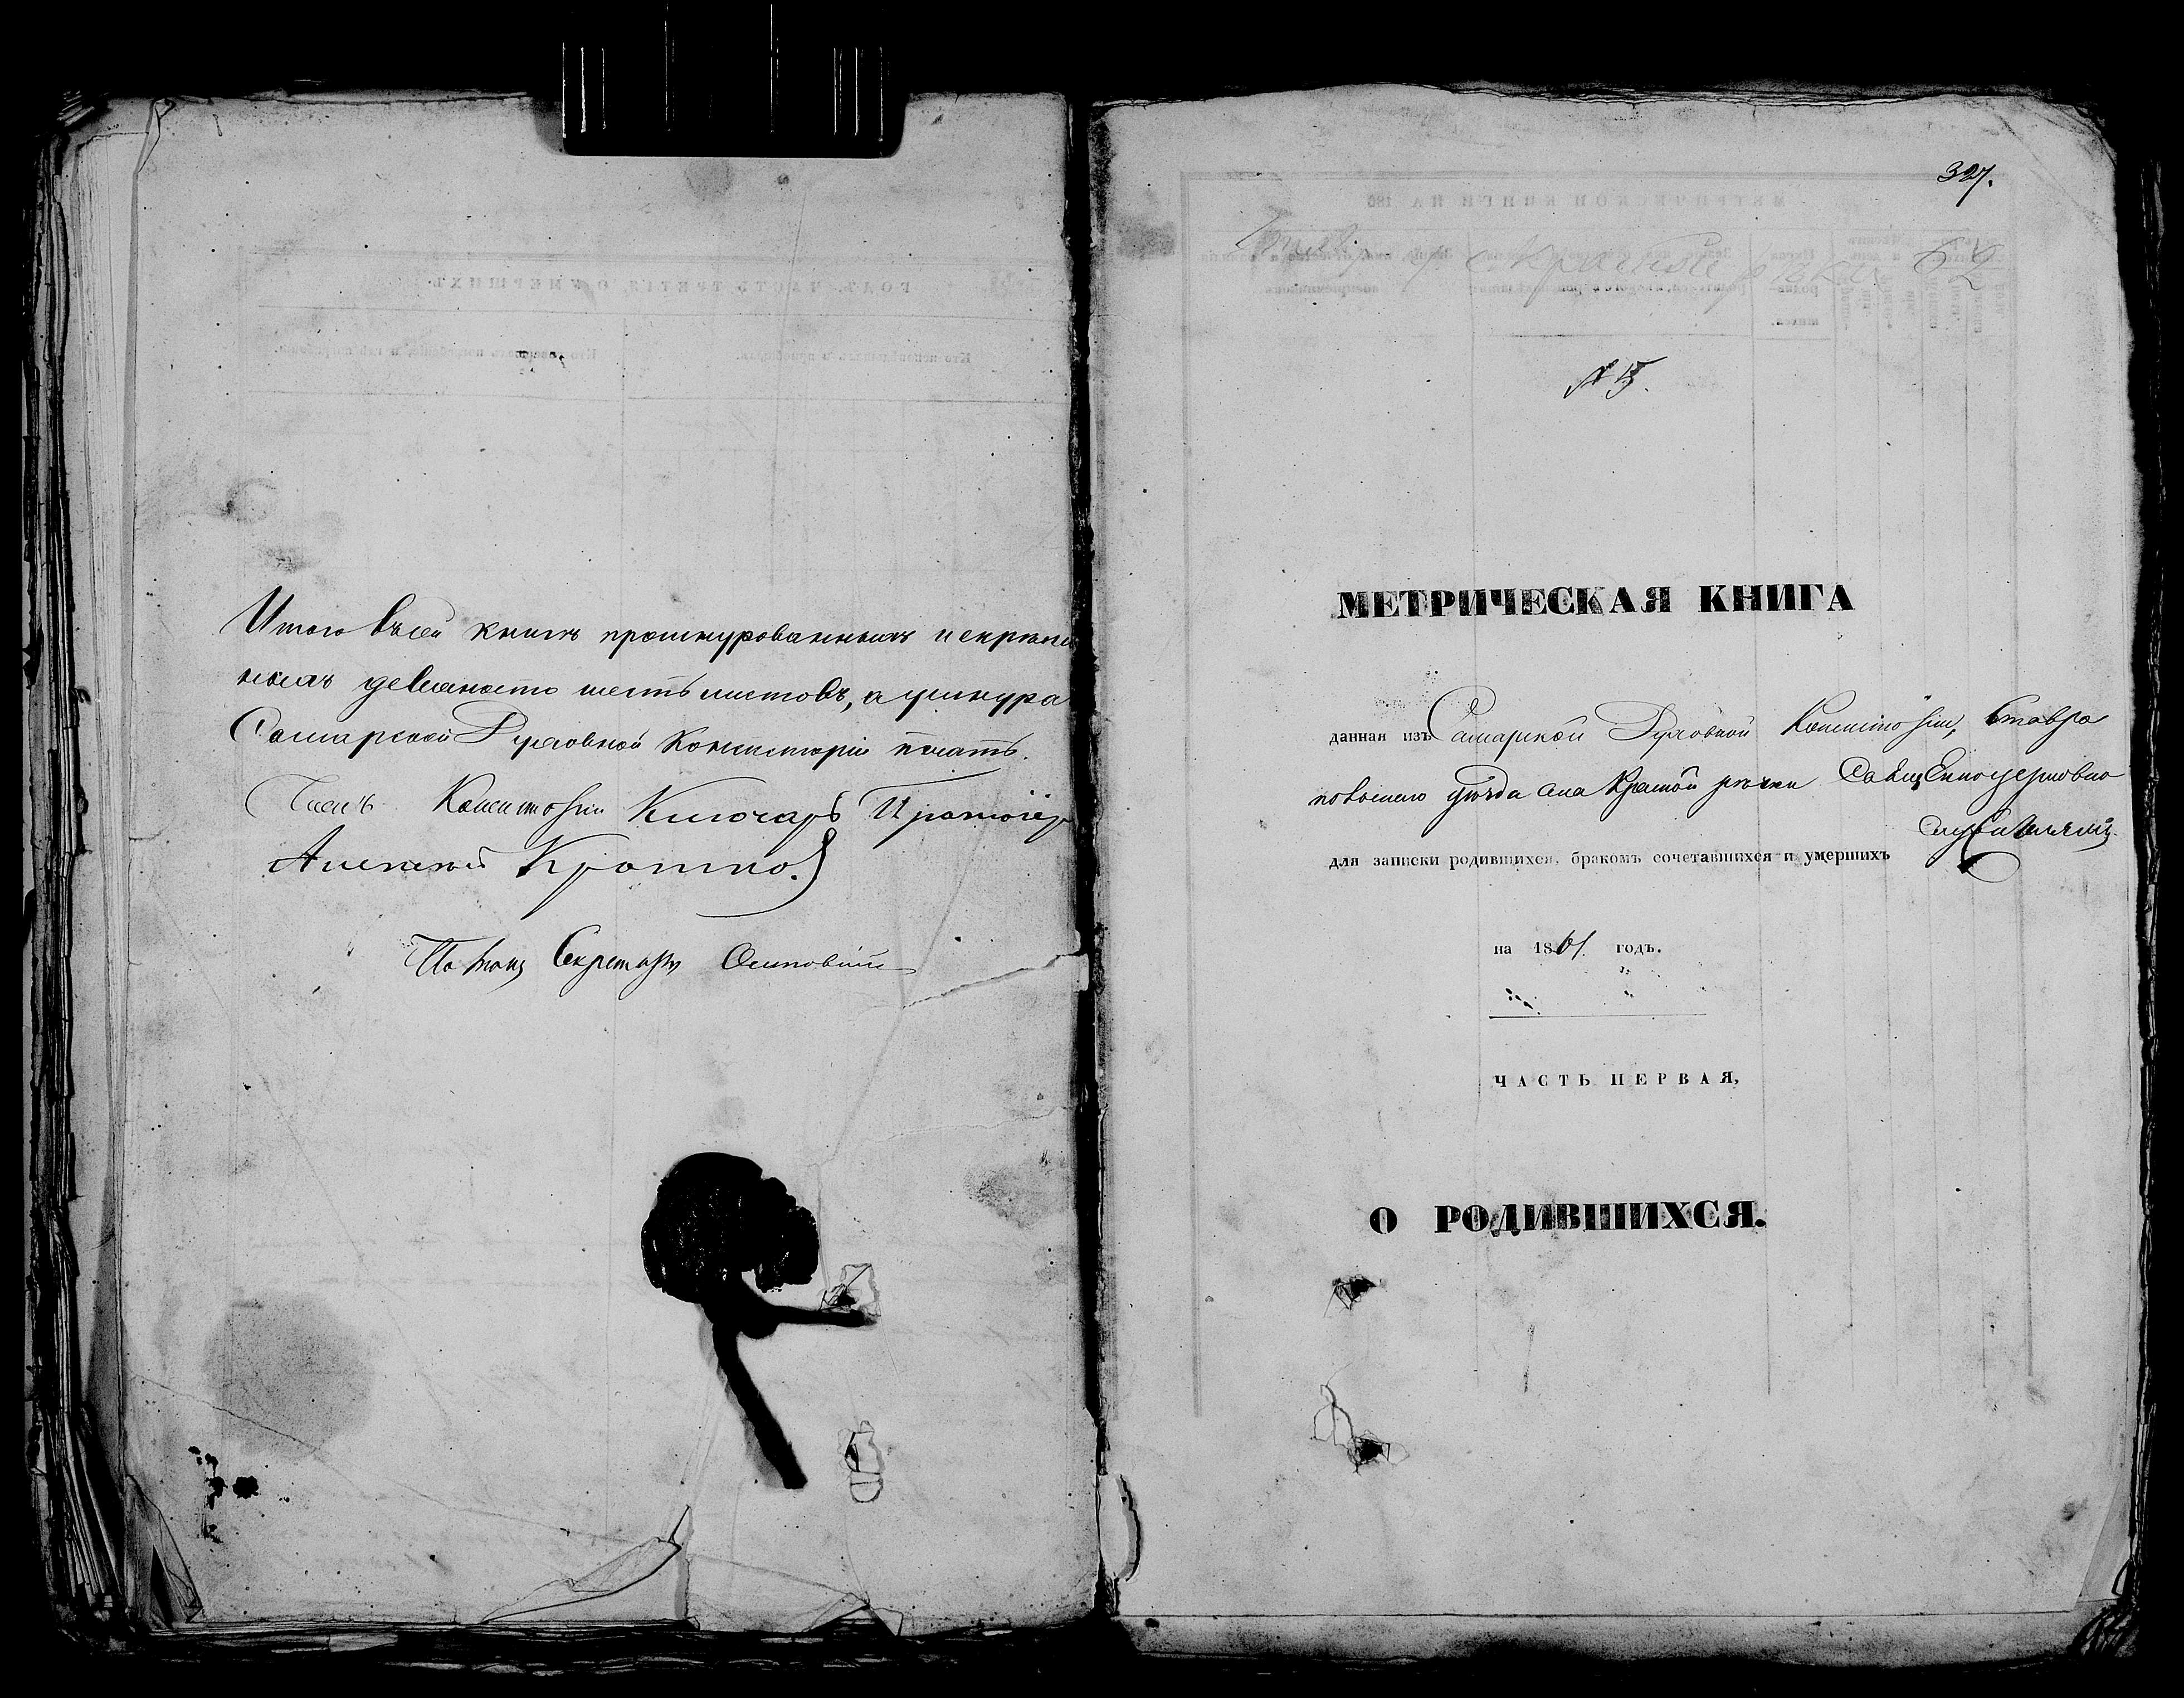 Итого въсей книгѣ прошнурованныхъ и скрѣплен
ныхъ девяносто шесть листовъ, а у шнура
Самарской Духовной Консисторіи печать.
Членъ Консисторіи Ключарь Протоіер
Алексей
Секретаря
327.
красной рѣчки 62
№ 5.
МЕТРИЧЕСКАЯ КНИГА
данная изъ Самарской Духовной Консисторіи, Ставро
польскаго уѣзда села Красной рѣчки Священноцерковно
служителямъ
для записки родившихся, бракомъ сочетавшихся и умершихъ
на 1861 годъ.
ЧАСТЬ ПЕРВАЯ,
О РОДИВШИХСЯ.